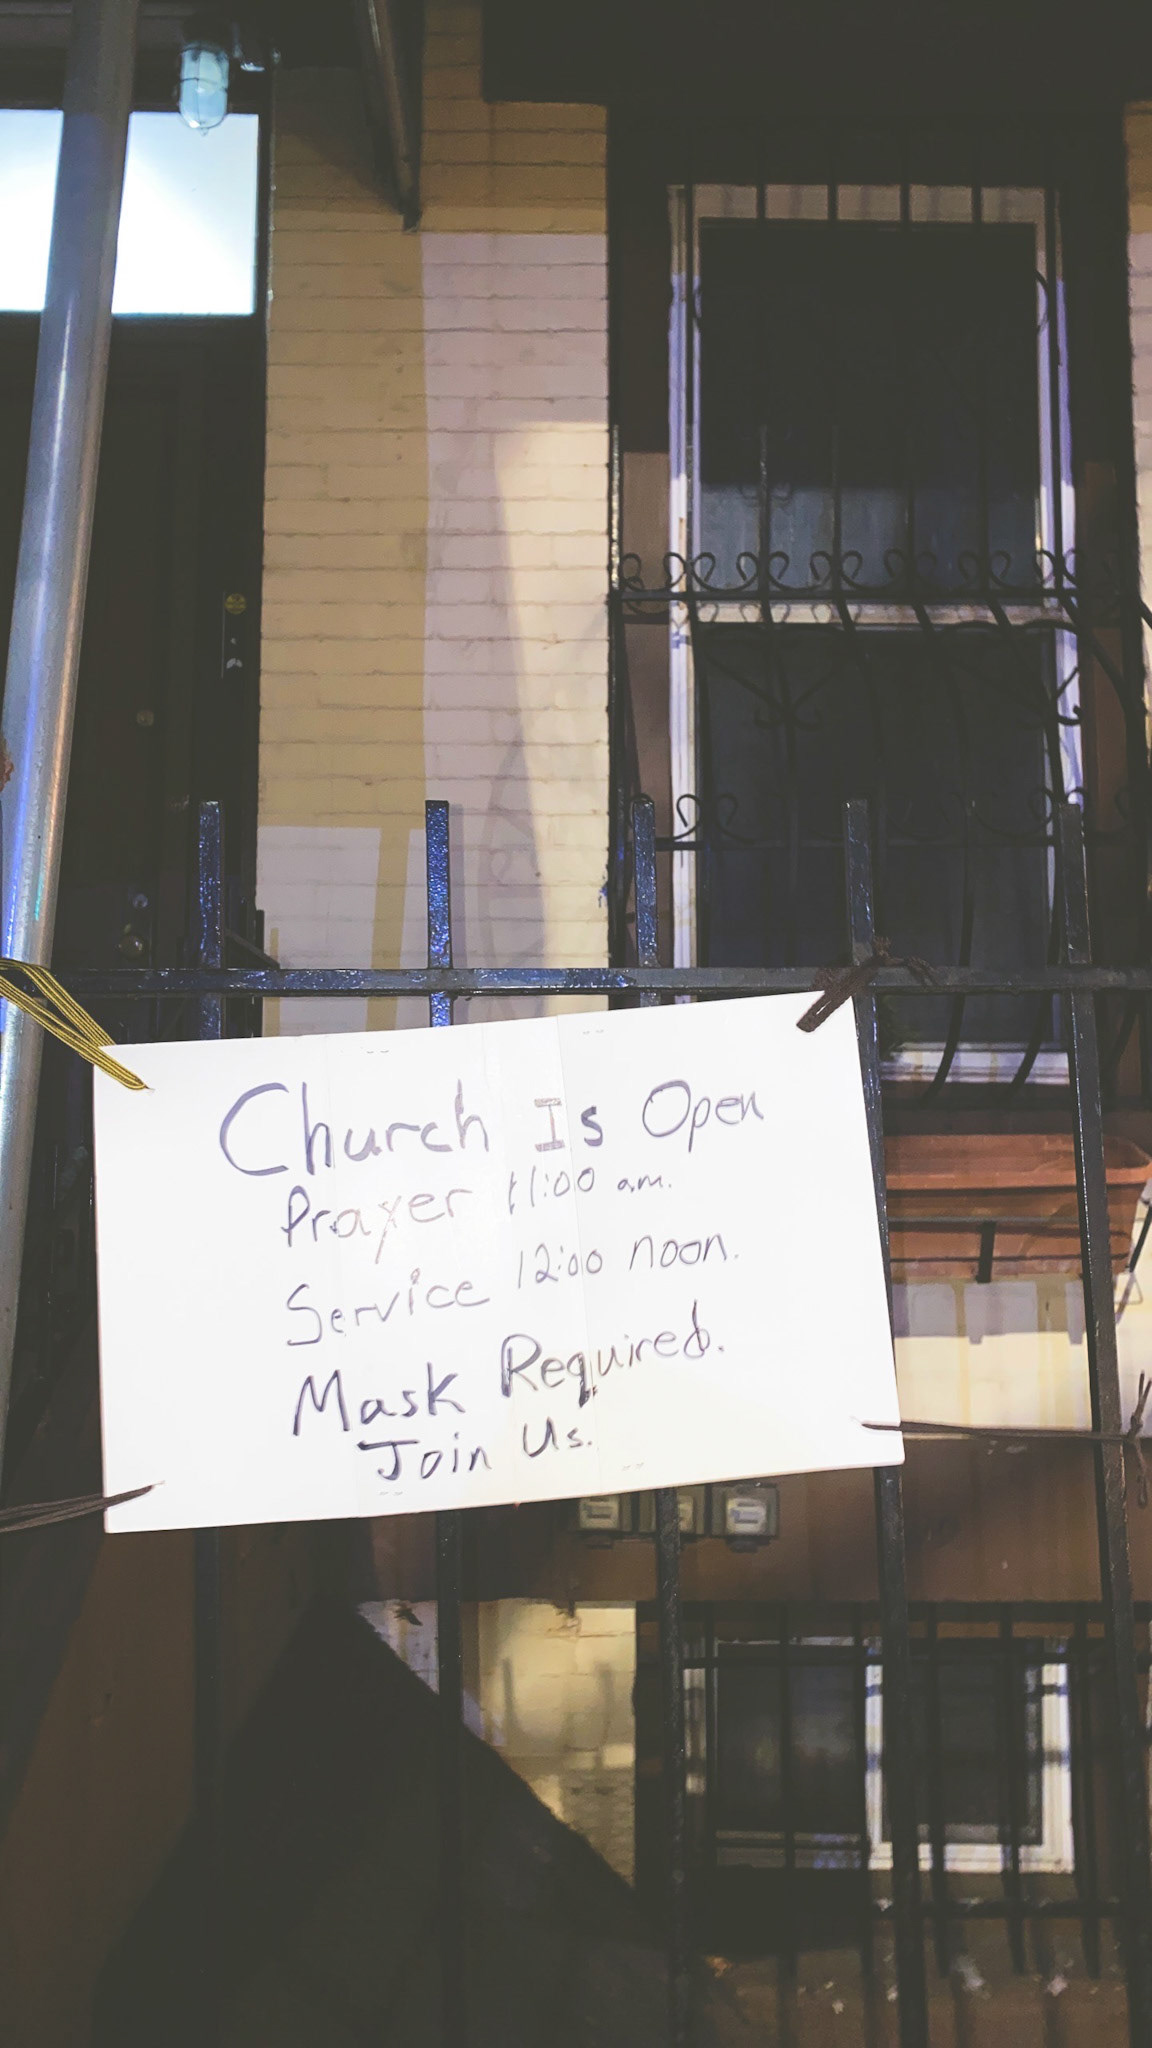 Church Is Open
Prayer 11:00 a.m.
Service 12:00 noon.
Mask Required.
Join Us.